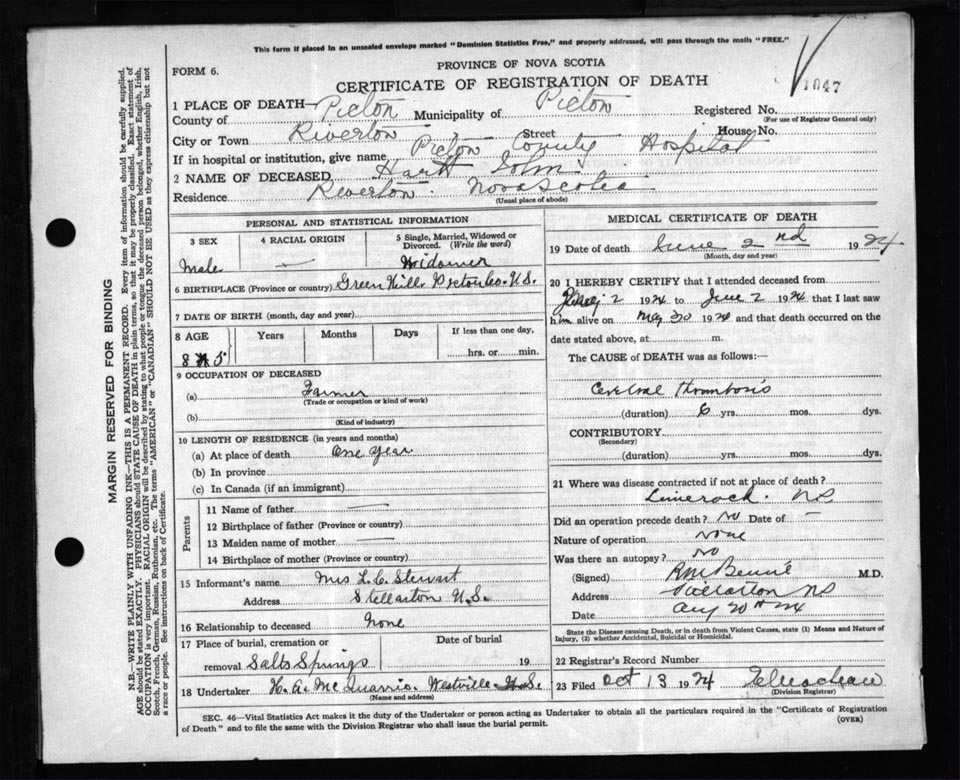 This form if placed in an unsealed envelope marked "Dominion Statistics Free," and properly addressed, will pass through the mails "FREE."
PROVINCE OF NOVA SCOTIA
FORM 6.
CERTIFICATE OF REGISTRATION OF DEATH
1047
1 PLACE OF DEATH—
County of Pictou Municipality of Pictou Registered No.
(For use of Registrar General only)
City or Town Riverton Street House No.
If in hospital or institution, give name Pictou County Hospital
2 NAME OF DECEASED Hart John
Residence Riverton Nova Scotia
(Usual place of abode)
PERSONAL AND STATISTICAL INFORMATION
3 SEX 4 RACIAL ORIGIN 5 Single, Married, Widowed or Divorced. (Write the word)
Male — Widower
6 BIRTHPLACE (Province or country) Green Hill Pictou Co. N.S.
7 DATE OF BIRTH (month, day and year)
8 AGE Years Months Days If less than one day,
85 hrs. or min.
9 OCCUPATION OF DECEASED
(a) Farmer
(Trade or occupation or kind of work)
(b)
(Kind of industry)
10 LENGTH OF RESIDENCE (in years and months)
(a) At place of death One year
(b) In province
(c) In Canada (if an immigrant)
Parents
11 Name of father —
12 Birthplace of father (Province or country)
13 Maiden name of mother —
14 Birthplace of mother (Province or country)
15 Informant's name Mrs L. C. Stewart
Address Stellarton N.S.
16 Relationship to deceased None
17 Place of burial, cremation or Date of burial
removal Salts Springs 19
18 Undertaker H. A. McQuarrie Westville N.S.
(Name and address)
MEDICAL CERTIFICATE OF DEATH
19 Date of death June 2nd 1924
(Month, day and year)
20 I HEREBY CERTIFY that I attended deceased from
2 1924 to June 2 1924 that I last saw
him alive on May 30 1924 and that death occurred on the
date stated above, at m.
The CAUSE of DEATH was as follows:—
Cerebral Thrombosis
(duration) 6 yrs. mos. dys.
CONTRIBUTORY
(Secondary)
(duration) yrs. mos. dys.
21 Where was disease contracted if not at place of death?
Limerock. NS
Did an operation precede death? No Date of —
Nature of operation None
Was there an autopsy? No
(Signed) M.D.
Address Stellarton NS
Date Aug 20th 24
State the Disease causing Death, or in death from Violent Causes, state (1) Means and Nature of Injury, (2) whether Accidental, Suicidal or Homicidal.
22 Registrar's Record Number
23 Filed Oct 13 1924
(Division Registrar)
SEC. 46—Vital Statistics Act makes it the duty of the Undertaker or person acting as Undertaker to obtain all the particulars required in the "Certificate of Registration
of Death" and to file the same with the Division Registrar who shall issue the burial permit. (OVER)
MARGIN RESERVED FOR BINDING
N.B.—WRITE PLAINLY WITH UNFADING INK—THIS IS A PERMANENT RECORD. Every item of information should be carefully supplied.
AGE should be stated EXACTLY. PHYSICIANS should STATE CAUSE OF DEATH in plain terms, so that it may be properly classified. Exact statement of
OCCUPATION is very important. RACIAL ORIGIN will be described by stating to what people or tongue the deceased person belonged, whether English, Irish,
Scotch, French, German, Russian, Ruthenian, etc. The terms "AMERICAN" or "CANADIAN" SHOULD NOT BE USED as they express citizenship but not
a race or people. See instructions on back of Certificate.